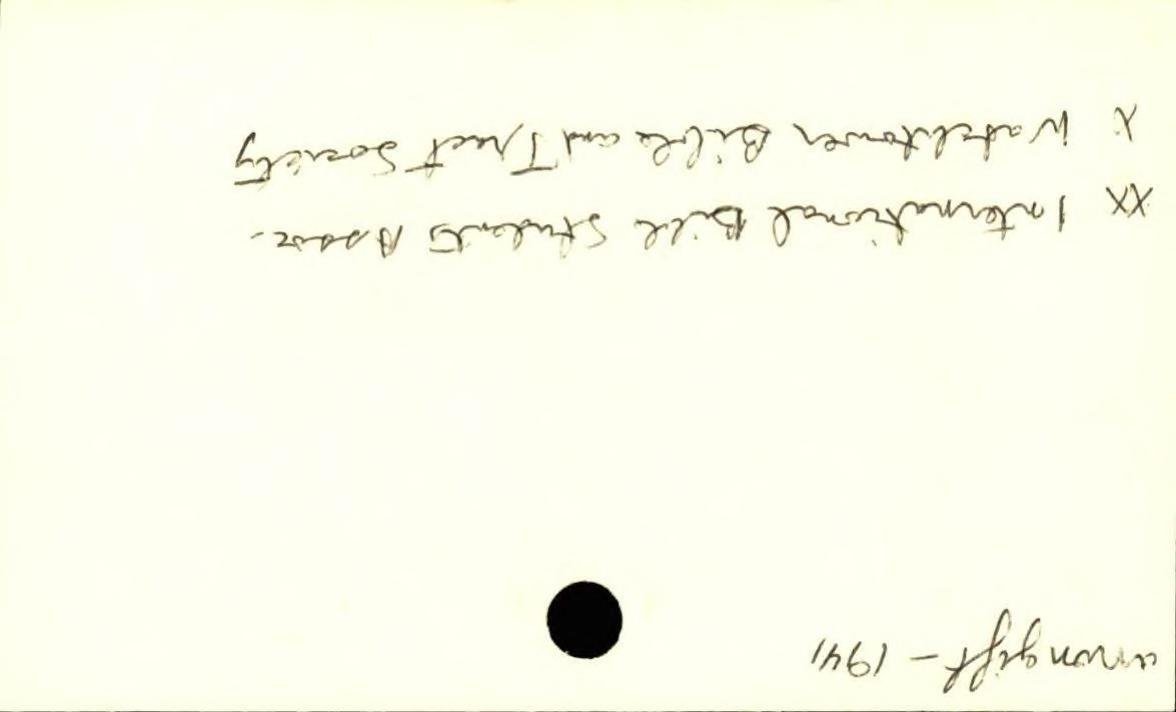 anon gift - 1941
XX International Bible Students Assoc.
X Watchtower Bible and Tract Society